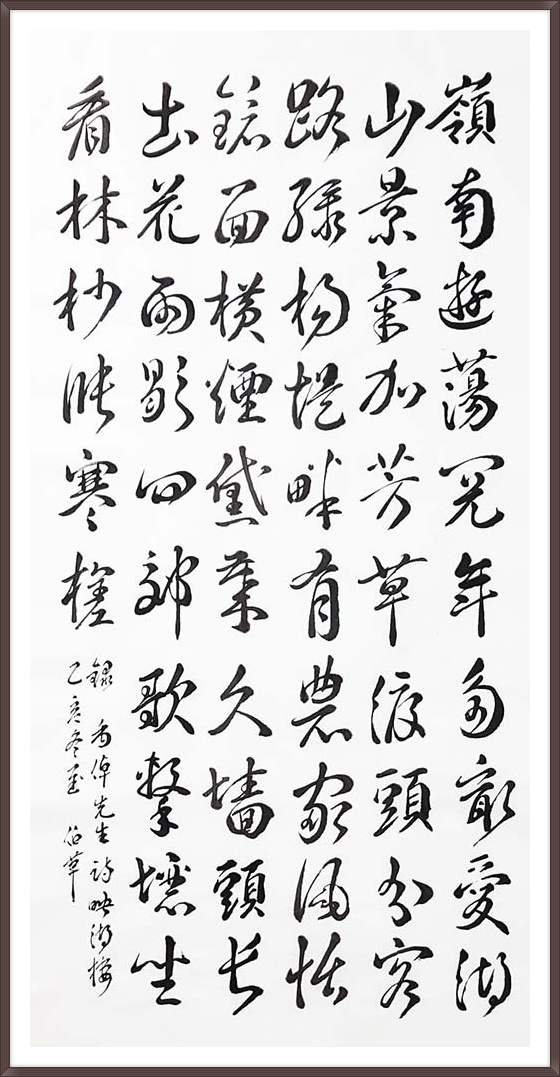 嶺南遊蕩年多最愛湖
山景氣加芳草渡頭分客
路綠楊堤畔有農家風恬
鏡面橫煙黛久墻頭長
土花雨歇四郊歌擊壤坐
看林杪寒槎
錄先生詩映湖樓
乙亥冬至 伯草